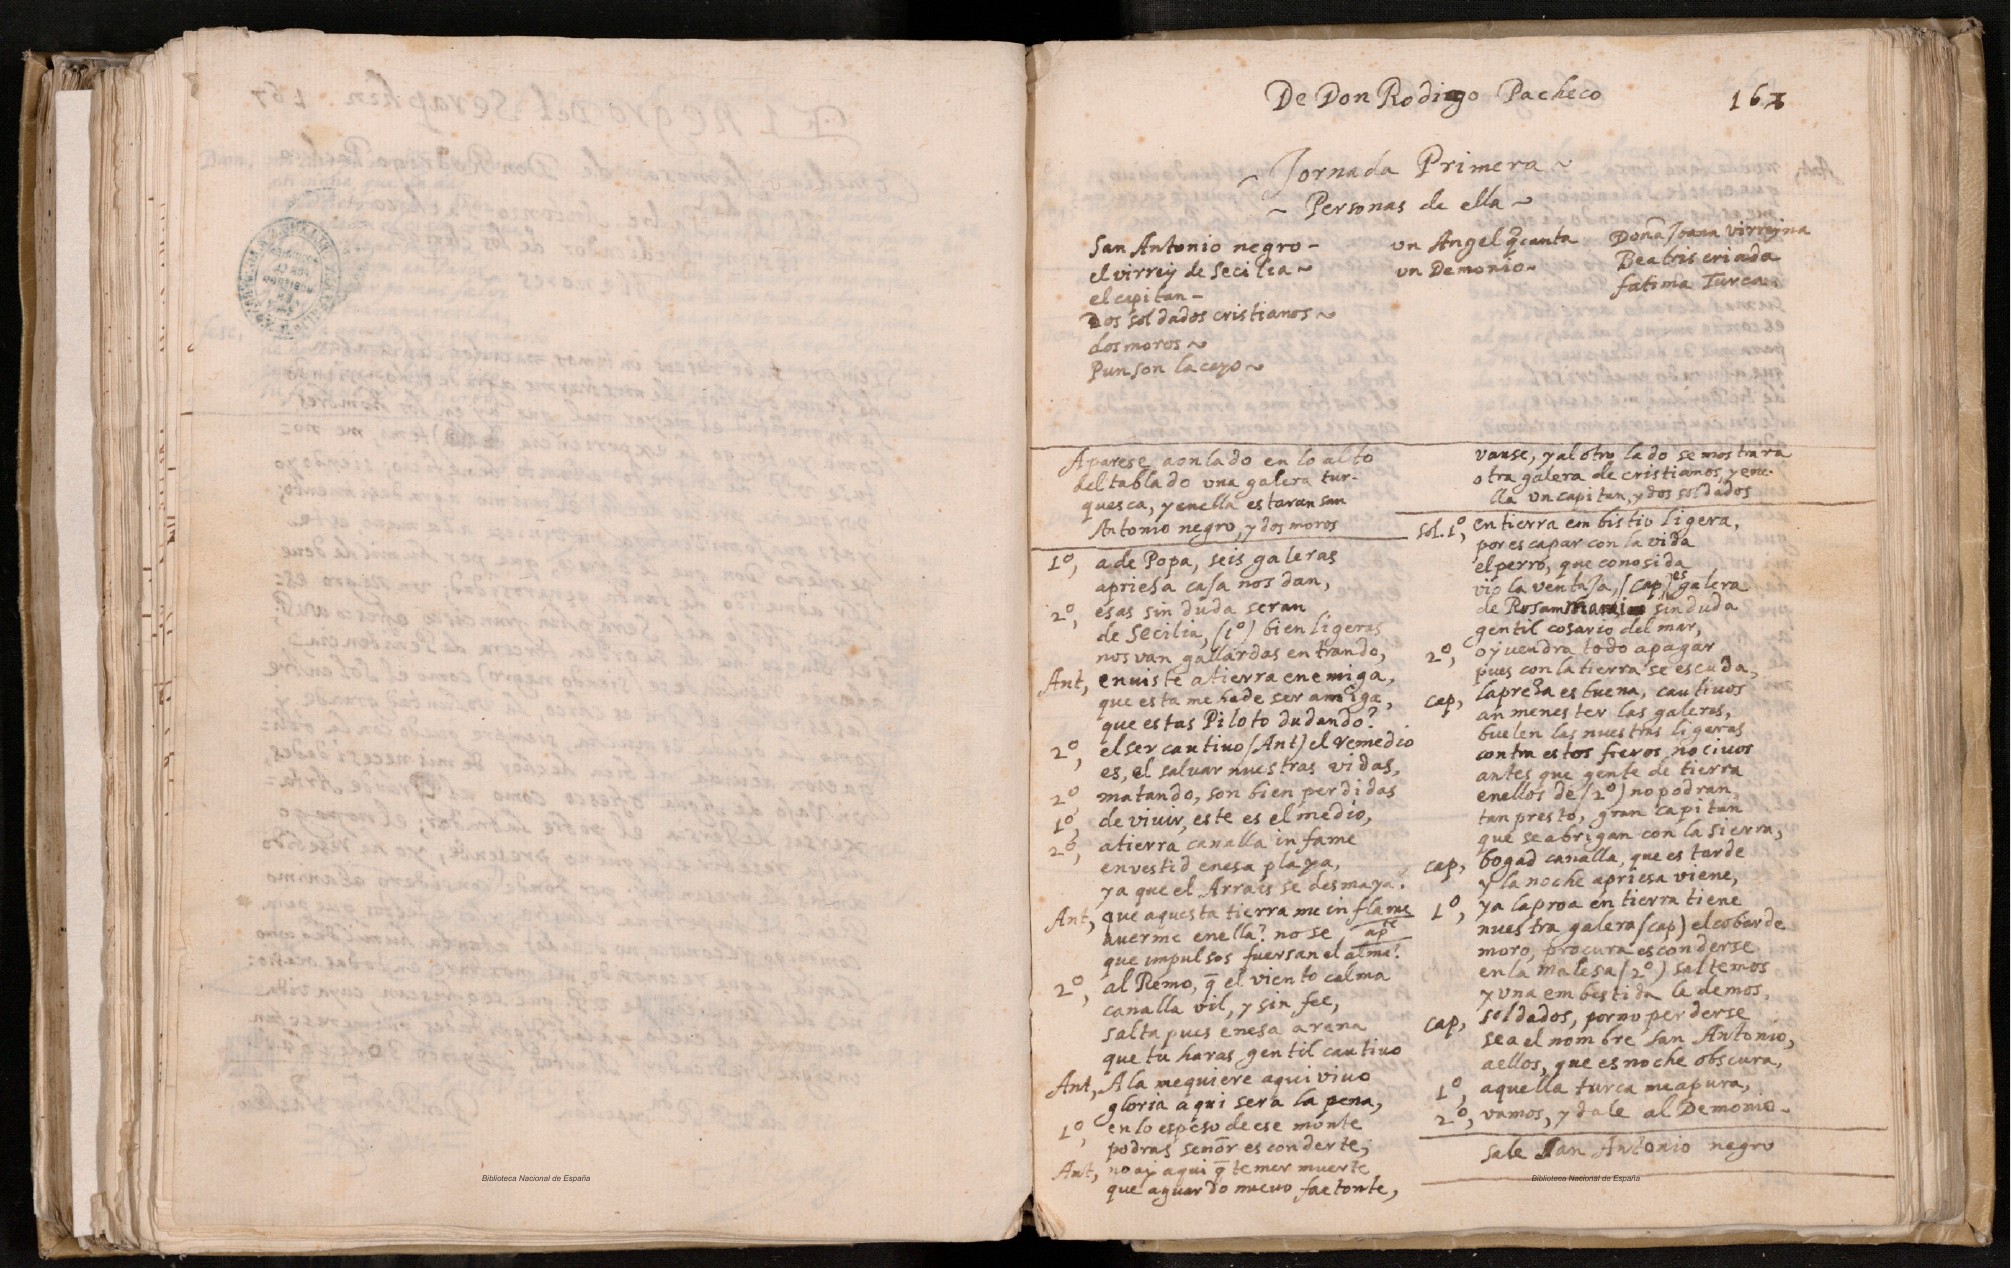 De Don Rodrigo Pacheco
168
Jornada Primera ~
~ Personas de ella ~
San Antonio negro -
el virrey de Secilia ~
el capitan -
Dos soldados cristianos ~
dos moros ~
Punson lacayo ~
un Angel q̃ canta
un Demonio ~
Doña Joana virreyna
Beatris criada
fatima Turca.
Aparese aon lado en lo alto
del tablado una galera tur-
quesca, y en ella estaran san
Antonio negro, y dos moros
1º, a de Popa, seis galeras
apriesa casa nos dan,
2º, esas sin duda seran
de Secilia, (1º) bien ligeras
nos van gallardas entrando,
Ant, enuiste atierra enemiga,
que esta me hade ser amiga,
que estas Piloto dudando?
2º, el ser cautiuo (Ant) el remedio
es, el saluar nuestras vidas,
2º, matando, son bien perdidas
1º, de viuir, este es el medio,
2º, atierra canalla infame
envestid enesa playa,
ya que el Arrais se desmaya?
Ant, que aquesta tierra me inflame
auerme enella? no se apte
que impulsos fuersan el alma?
2º, al Remo, q̃ el viento calma
canalla vil, y sin fee,
salta pues enesa arena
que tu haras gentil cautiuo
Ant, Ala mequiere aqui viuo
gloria aqui sera la pena,
1º, en lo espeso de ese monte
podras señor esconderte,
Ant, no ay aqui q̃ temer muerte
que aguardo nueuo faetonte,
vanse, y al otro lado se mostrara
otra galera de cristianos, y ene-
lla un capitan, y dos soldados
sol. 1º, en tierra embistio ligera,
por escapar con la vida
el perro, que conosida
vio la ventaja, (cap) es galera
de Rosam sin duda
gentil cosario del mar,
2º, oy vendra todo apagar
pues con la tierra se escuda,
cap, la presa es buena, cautiuos
an menester las galeras,
buelen las nuestras ligeras
contra estos fieros nociuos
antes que gente de tierra
enellos de (2º) no podran
tan presto, gran capitan
que se abrigan con la sierra,
cap, bogad canalla, que es tarde
y la noche apriesa viene,
1º, ya la proa en tierra tiene
nuestra galera (cap) el cobarde
moro, procura esconderse
en la malesa (2º) saltemos
y una embestida le demos,
cap, soldados, por no perderse
sea el nombre San Antonio,
aellos, que es noche obscura,
1º, aquella turca me apura,
2º, vamos, y dale al Demonio -
sale San Antonio negro
Biblioteca Nacional de España
Biblioteca Nacional de España